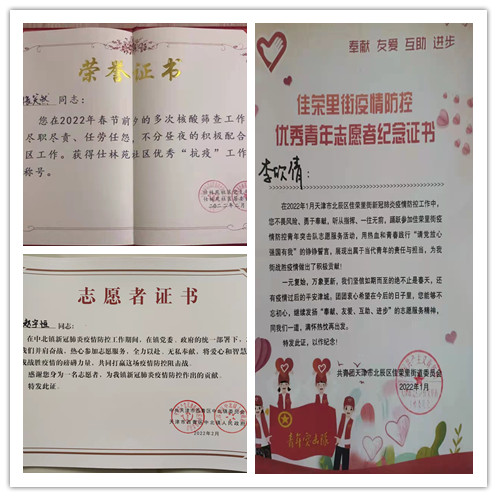 荣誉证书
同志：
您在2022年春节前夕的多次核酸筛查工作
尽职尽责、任劳任怨，不分昼夜的积极配合
区工作。获得仕林苑社区优秀“抗疫”工作
称号。
二〇二二年二月
志愿者证书
同志：
在中北镇新冠肺炎疫情防控工作期间，在镇党委、政府的统一部署下，
我们并肩奋战，热心参加志愿服务，全力以赴、无私奉献，将爱心和智慧
成战胜疫情的磅礴力量，共同打赢这场疫情防控阻击战。
感谢您身为一名志愿者，为我镇新冠肺炎疫情防控作出的贡献。
特发此证。
中共天津市西青区中北镇委员会
天津市西青区中北镇人民政府
2022年2月
奉献 友爱 互助 进步
佳荣里街疫情防控
优秀青年志愿者纪念证书
李欣倩：
在2022年1月天津市北辰区佳荣里街新冠肺炎疫情防控工作中，
您不畏风险、勇于奉献，听从指挥、一往无前，踊跃参加佳荣里街疫
情防控青年突击队志愿服务活动，用热血和青春践行“请党放心
强国有我”的铮铮誓言，展现出属于当代青年的责任与担当，为我
街战胜疫情做出了积极贡献！
一元复始，万象更新，我们坚信如期而至的绝不止是春天，还
有疫情过后的平安津城。团团衷心希望在今后的日子里，您能够不
忘初心，继续发扬“奉献、友爱、互助、进步”的志愿服务精神，
同我们一道，满怀热忱再出发。
特发此证，以作纪念！
共青团天津市北辰区佳荣里街道委员会
2022年1月
青年突击队